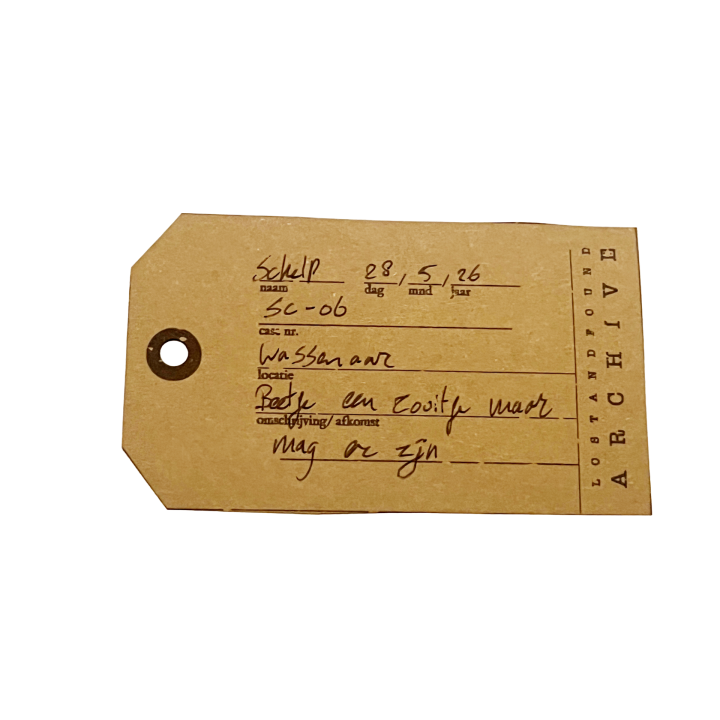 Schelp 28 / 5 / 26
naam dag mnd jaar
SC-06
cas. nr.
Wassenaar
locatie
Beetje een zooitje maar
omschrijving/ afkomst
mag er zijn
LOSTANDFOUND
ARCHIVE